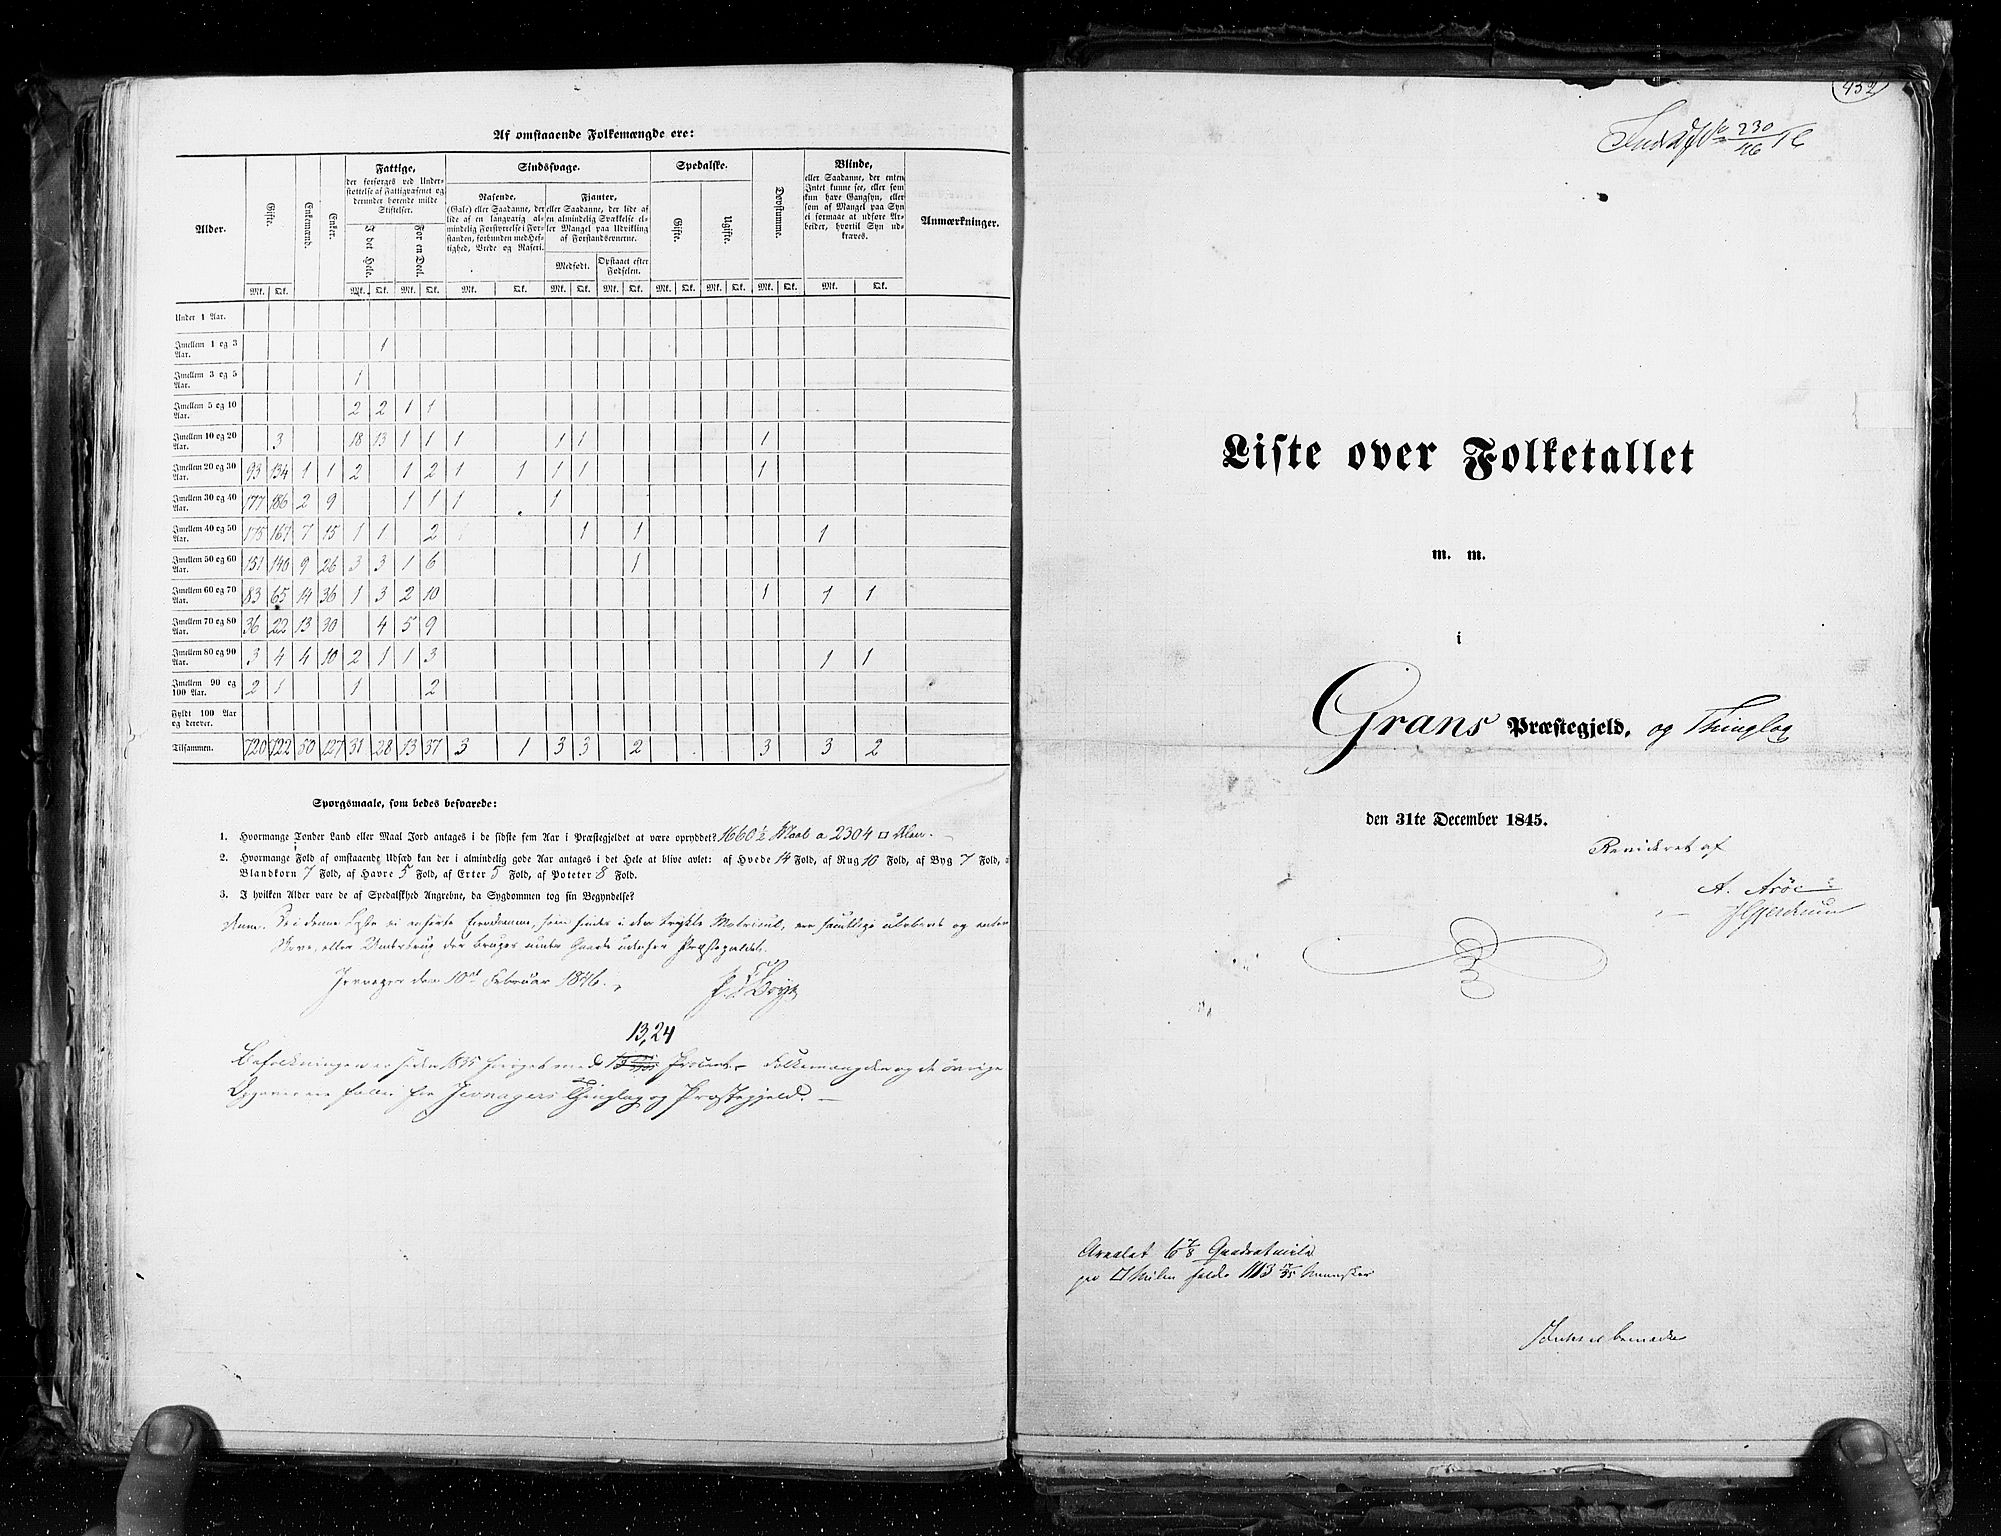 Af omstaaende Folkemængde ere:
Alder.
Gifte.
Enkemænd.
Enker.
Fattige,
der forsorges ved Under-
stottelse af Fattigvæsenet og
derunder horende milde
Stiftelser.
I det Hele.
For en Deel.
Sindssvage.
Rasende.
(Gale) eller Saadanne, der
lide af en langvarig al-
mindelig Forstyrrelse i For-
standen, forbunden med Hef-
tighed, Vrede og Raseri.
Fjanter,
eller Saadanne, der lide af
en almindelig Svækkelse el-
ler Mangel paa Udvikling
af Forstandsevnerne.
Medfodt.
Opstaaet efter
Fodselen.
Spedalske.
Gifte.
Ugifte.
Dovstumme.
Blinde,
eller Saadanne, der enten
Intet kunne see, eller som
kun have Gangsyn, eller
som af Mangel paa Syn
ei formaae at udfore Ar-
beider, hvortil Syn ud-
kræves.
Anmærkninger.
Mk. Qk. Mk. Qk. Mk. Qk. Mk. Qk. Mk. Qk. Mk. Qk. Mk. Qk. Mk. Qk. Mk. Qk. Mk. Qk.
Under 1 Aar.
Imellem 1 og 3 Aar. 1
Imellem 3 og 5 Aar. 1
Imellem 5 og 10 Aar. 2 2 1 1
Imellem 10 og 20 Aar. 3 18 13 1 1 1 1 1 1
Imellem 20 og 30 Aar. 93 134 1 1 2 1 2 1 1 1 1 1
Imellem 30 og 40 Aar. 177 186 2 9 1 1 1 1
Imellem 40 og 50 Aar. 175 167 7 15 1 1 2 1 1 1
Imellem 50 og 60 Aar. 151 140 9 26 3 3 1 6 1
Imellem 60 og 70 Aar. 83 65 14 36 1 3 2 10 1 1 1
Imellem 70 og 80 Aar. 36 22 13 30 4 5 9
Imellem 80 og 90 Aar. 3 4 4 10 2 1 1 3 1 1
Imellem 90 og 100 Aar. 2 1 1 2
Fyldt 100 Aar og derover.
Tilsammen. 720 722 50 127 31 28 13 37 3 1 3 3 2 3 3 2
Spørgsmaale, som bedes besvarede:
1. Hvormange Tønder Land eller Maal Jord antages i de sidste fem Aar i Præstegjeldet at være opryddet? 1660½ Maal a 2304 □ Alen.
2. Hvormange Fold af omstaaende Udsæd kan der i almindelig gode Aar antages i det Hele at blive avlet: af Hvede 14 Fold, af Rug 10 Fold, af Byg 7 Fold,
Blandkorn 7 Fold, af Havre 5 Fold, af Erter 5 Fold, af Poteter 8 Fold.
3. I hvilken Alder vare de af Spedalskhed Angrebne, da Sygdommen tog sin Begyndelse?
Anm. De i denne Liste ei anførte Eiendomme, som findes i den trykte Matricul, ere samtlige ubeboet og enten
Skove, eller Underbrug der bruges under Gaarde udenfor Præstegjeldet.
Jevnager den 10de Februar 1846.
13,24
Befolkningen er siden 1835 forøget med Procent. Folkemængden og de øvrige
Opgaver ere talte for Jevnagers Thinglag og Præstegjeld.
452
230
46
Liste over Folketallet
m. m.
i
Grans Præstegjeld, og Thinglag
den 31te December 1845.
Revideret af
A. Arøe
Arealet 6 7/8 Quadratmile
pr □ Milen falde 1113 Mennesker